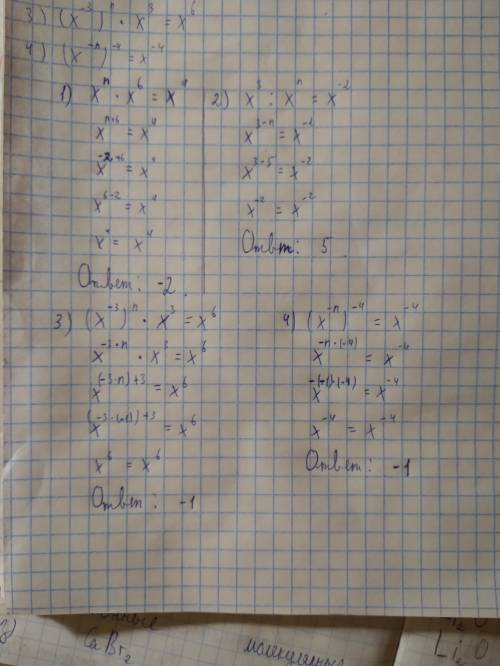 3) (x⁻³)ⁿ · x³ = x⁶
4) (x⁻ⁿ)⁻⁴ = x⁻⁴
1) xⁿ · x⁶ = x⁴
xⁿ⁺⁶ = x⁴
x⁻²⁺⁶ = x⁴
x⁶⁻² = x⁴
x⁴ = x⁴
Ответ: -2.
2) x³ : xⁿ = x⁻²
x³⁻ⁿ = x⁻²
x³⁻⁵ = x⁻²
x⁻² = x⁻²
Ответ: 5.
3) (x⁻³)ⁿ · x³ = x⁶
x⁻³·ⁿ · x³ = x⁶
x⁽⁻³·ⁿ⁾⁺³ = x⁶
x⁽⁻³·⁽⁻¹⁾⁾⁺³ = x⁶
x⁶ = x⁶
Ответ: -1
4) (x⁻ⁿ)⁻⁴ = x⁻⁴
x⁻ⁿ·⁽⁻⁴⁾ = x⁻⁴
x⁻⁽⁻¹⁾·⁽⁻⁴⁾ = x⁻⁴
x⁻⁴ = x⁻⁴
Ответ: -1
CaBr₂
Li₂O